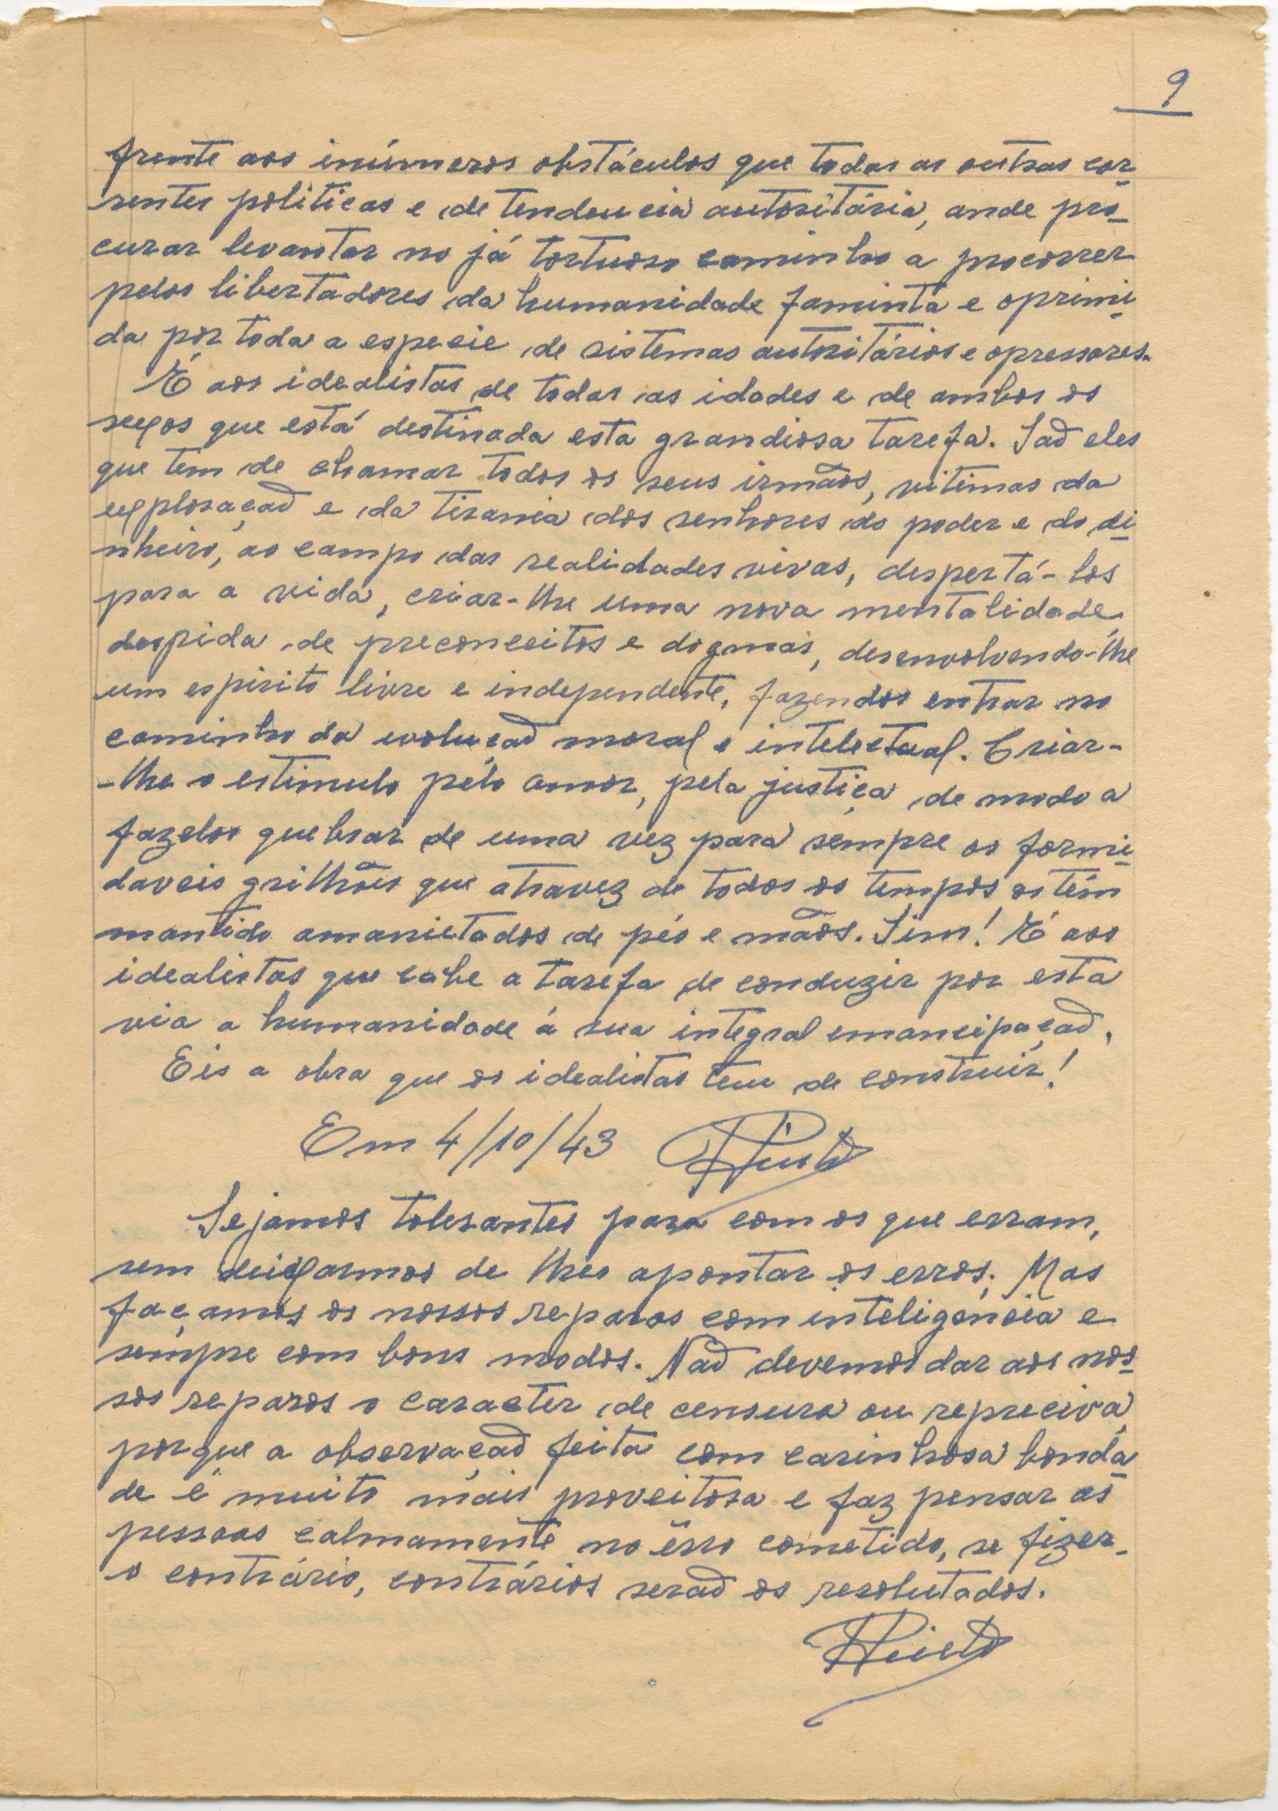 9
frente aos inúmeros obstáculos que todas as outras cor-
rentes politicas e de tendencia autoritária, ande pro-
curar levantar no já tortuoso caminho a precorrer
pelos libertadores da humanidade faminta e oprimi-
da por toda a especie de sistemas autoritários e opressores.
É aos idealistas de todas as idades e de ambos os
sexos que está destinada esta grandiosa tarefa. Saõ eles
que tem de chamar todos os seus irmãos, vitimas da
exploraçaõ e da tirania dos senhores do poder e do di-
nheiro, ao campo das realidades vivas, despertá-los
para a vida, criar-lhe uma nova mentalidade,
despida de preconceitos e dogmas, desenvolvendo-lhe
um espirito livre e independente, fazendos entrar no
caminho da evoluçaõ moral e intelectual. Criar-
-lhe o estimulo pelo amor, pela justiça, de modo a
fazelos quebrar de uma vez para sempre os formi-
daveis grilhões que atravez de todos os tempos os têm
mantido amanietados de pés e mãos. Sim! É aos
idealistas que cabe a tarefa de conduzir por esta
via a humanidade á sua integral emancipaçaõ.
Eis a obra que os idealistas tem de construir!
Em 4/10/43
Sejamos tolerantes para com os que erram,
sem deixarmos de lhes apontar os erros. Mas
façamos os nossos reparos com inteligencia e
sempre com bons modos. Naõ devemos dar aos nos-
sos reparos o caracter de censura ou repreciva,
porque a observaçaõ feita com carinhosa bonda-
de é muito mais proveitosa e faz pensar as
pessoas calmamente no êrro cometido, se fizer-
o contrário, contrários seraõ os resolutados.